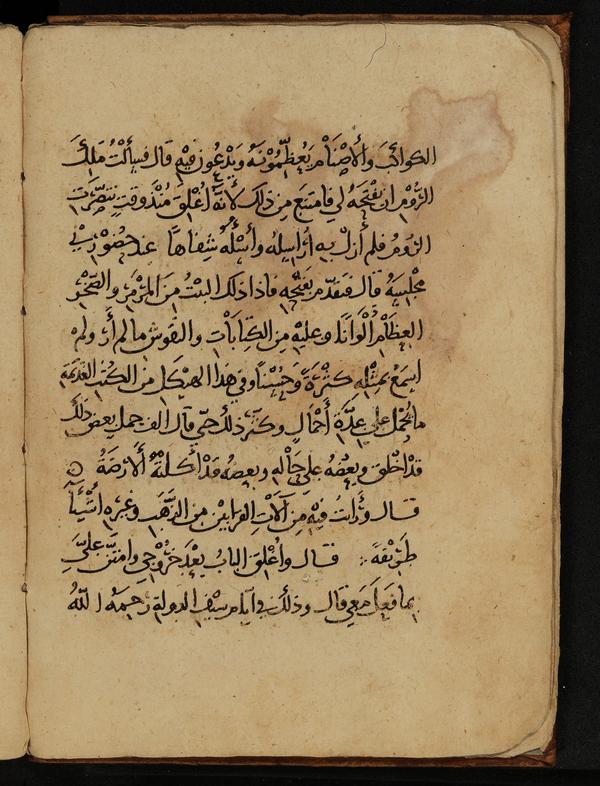 الكواكب والأصنام يعظمونه ويدعون فيه قال فسألت ملك
الروم ان يفتحه لي فامتنع من ذلك لانه اغلق منذ وقت تنصرت
الروم فلم أزل به اراسله وأسئله شفاها عند حضوري
مجلسه قال فتقدم بفتحه فاذا ذلك البيت من المرمر والصخر
العظام الوانا وعليه من الكتابات والنقوش ما لم أر ولم
اسمع بمثله كثرة وحسنا وفي هذا الهيكل من الكتب القديمة
ما يحمل على عدة أحمال وكثر ذلك حتى قال الف جمل بعض ذلك
قد اخلق وبعضه على حاله وبعضه قد أكلته الأرضة
قال ورأيت فيه من آلات القرابين من الذهب وغيره اشيآ
طريفة قال واغلق الباب بعد خروجي وامتن علي
بما فعل معي قال وذلك في ايام سيف الدولة رحمه الله